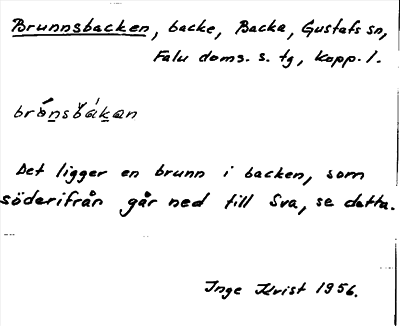 Brunnsbacken, backe, Backa, Gustafs sn,
Falu doms. s. tg, Kopp. l.
brónsbákan
Det ligger en brunn i backen, som
söderifrån går ned till Sva, se detta.
Inge Kvist 1956.